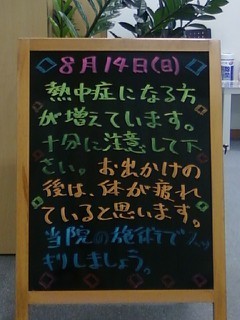 8月14日(日)
熱中症になる方
が増えています。
十分に注意して下
さい。お出かけの
後は、体が疲れ
ていると思います。
当院の施術でスッ
キリしましょう。